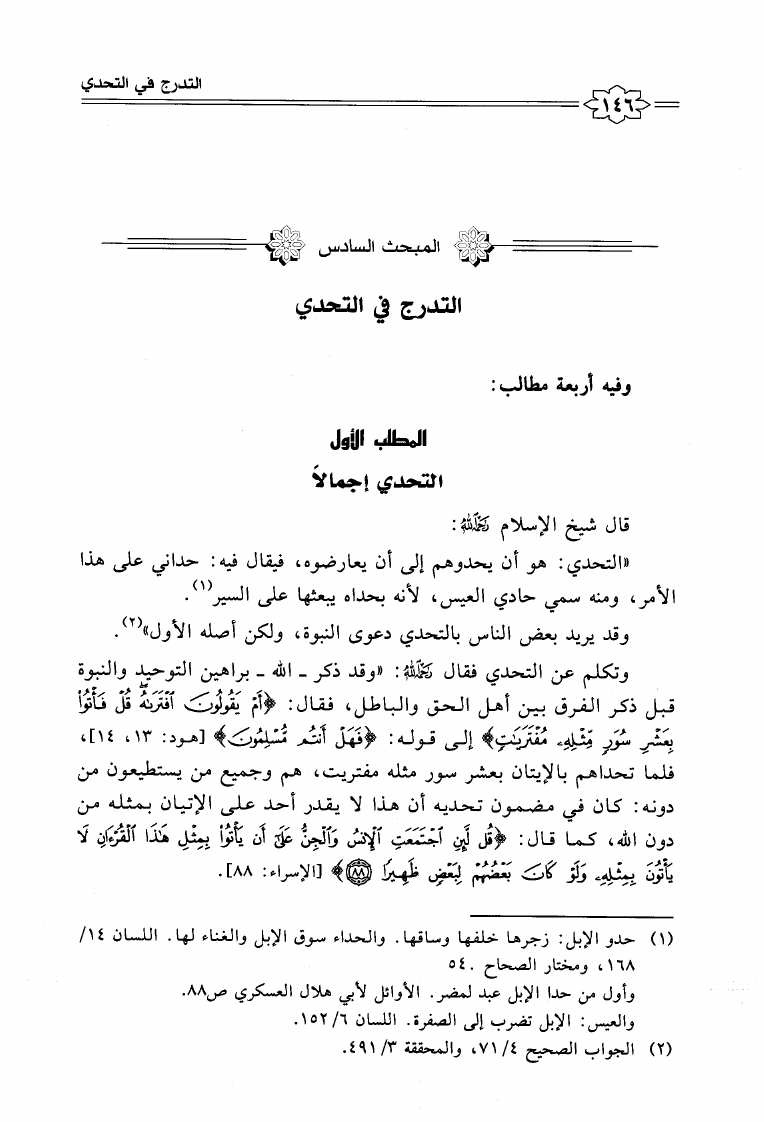 التدرج في التحدي
١٤٦
المبحث السادس
التدرج في التحدي
وفيه أربعة مطالب:
المطلب الأول
التحدي إجمالاً
قال شيخ الإسلام رحمه الله:
«التحدي: هو أن يحدوهم إلى أن يعارضوه، فيقال فيه: حداني على هذا
الأمر، ومنه سمي حادي العيس، لأنه بحداه يبعثها على السير(١).
وقد يريد بعض الناس بالتحدي دعوى النبوة، ولكن أصله الأول»(٢).
وتكلم عن التحدي فقال رحمه الله: «وقد ذكر ـ الله ـ براهين التوحيد والنبوة
قبل ذكر الفرق بين أهل الحق والباطل، فقال: ﴿أَمْ يَقُولُونَ ٱفْتَرَىٰهُ قُلْ فَأْتُوا۟
بِعَشْرِ سُوَرٍ مِّثْلِهِۦ مُفْتَرَيَٰتٍ﴾ إلى قوله: ﴿فَهَلْ أَنتُم مُّسْلِمُونَ﴾ [هود: ١٣، ١٤]،
فلما تحداهم بالإيتان بعشر سور مثله مفتريت، هم وجميع من يستطيعون من
دونه: كان في مضمون تحديه أن هذا لا يقدر أحد على الإتيان بمثله من
دون الله، كما قال: ﴿قُل لَّئِنِ ٱجْتَمَعَتِ ٱلْإِنسُ وَٱلْجِنُّ عَلَىٰٓ أَن يَأْتُوا۟ بِمِثْلِ هَٰذَا ٱلْقُرْءَانِ لَا
يَأْتُونَ بِمِثْلِهِۦ وَلَوْ كَانَ بَعْضُهُمْ لِبَعْضٍ ظَهِيرًا ٨٨﴾ [الإسراء: ٨٨].
(١) حدو الإبل: زجرها خلفها وساقها. والحداء سوق الإبل والغناء لها. اللسان ١٤/
١٦٨، ومختار الصحاح ٥٤.
وأول من حدا الإبل عبد لمضر. الأوائل لأبي هلال العسكري ص٨٨.
والعيس: الإبل تضرب إلى الصفرة. اللسان ٦/ ١٥٢.
(٢) الجواب الصحيح ٤/ ٧١، والمحققة ٣/ ٤٩١.